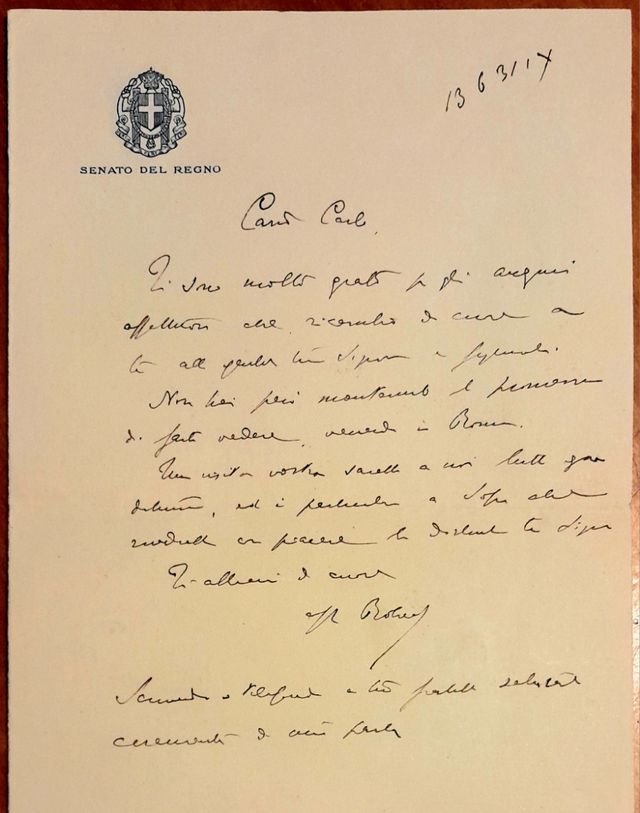 SENATO DEL REGNO
13 6 31 IX
Caro Carlo,
Ti sono molto grato per gli auguri
affettuosi che ricambio di cuore a
te alla gentile tua Signora e figliuoli.
Non hai però mantenuto la promessa
di farti vedere, venendo in Roma.
Una visita vostra sarebbe a noi tutti
, ed in particolare a che
con piacere la tua Signora
Ti abbracci di cuore
aff
Scrivendo o a tuo fratello salutarlo
caramente da mia parte